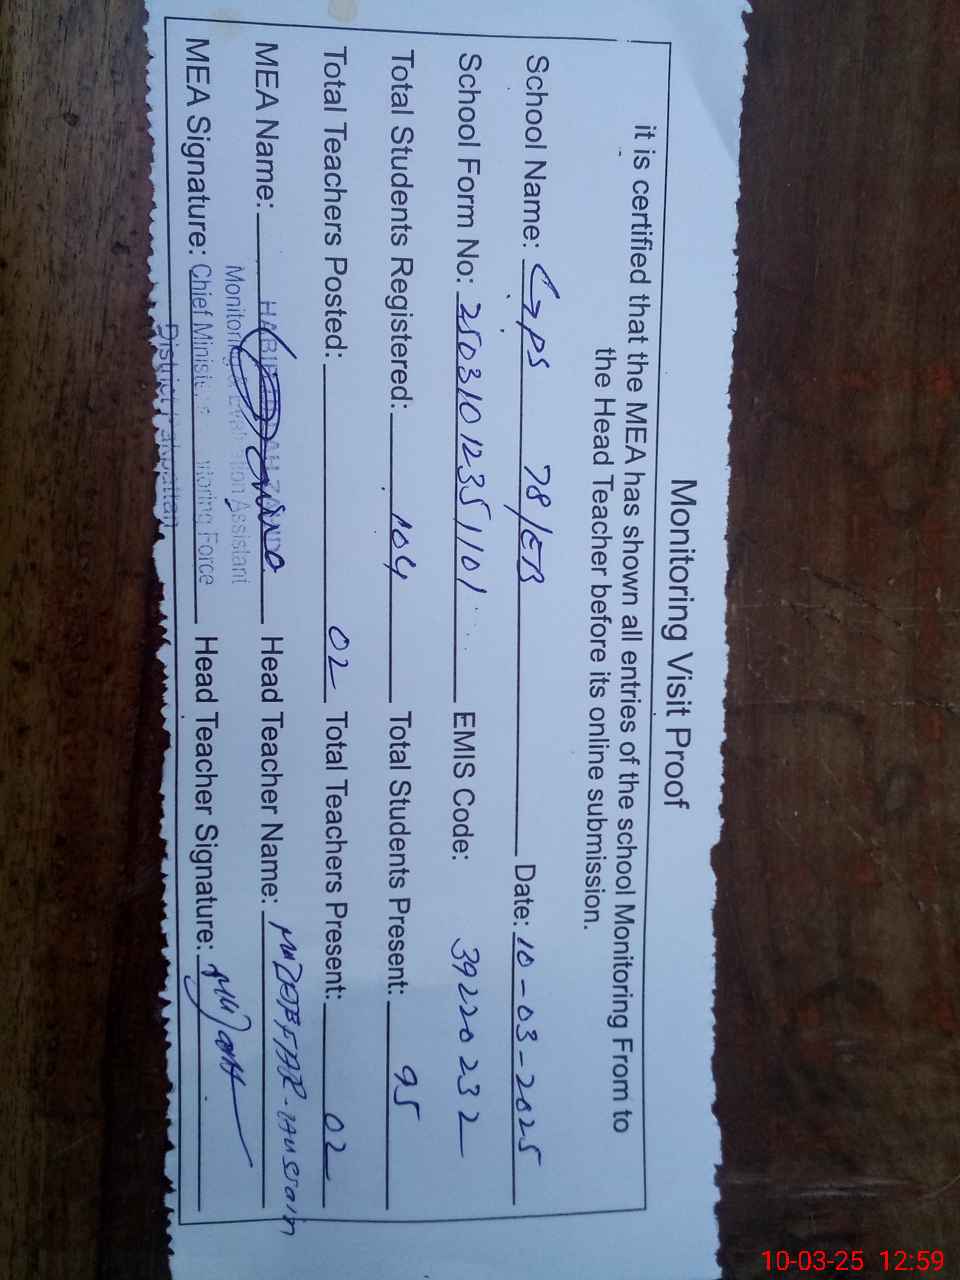 Monitoring Visit Proof
it is certified that the MEA has shown all entries of the school Monitoring From to
the Head Teacher before its online submission.
School Name: GPS 78/EB Date: 10-03-2025
School Form No: 25031012351101 EMIS Code: 39220232
Total Students Registered: 104 Total Students Present: 95
Total Teachers Posted: 02 Total Teachers Present: 02
MEA Name: Head Teacher Name: MUZAFFAR-HUSSAIN
Monitoring Assistant
MEA Signature: Chief Minister's Monitoring Force Head Teacher Signature:
District Pakpattan
10-03-25 12:59